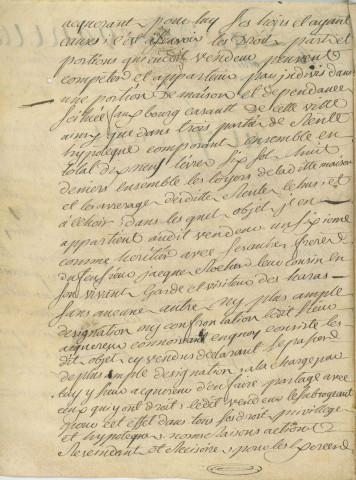 acquerant pour luy ses hoirs et ayant
causes c'est a scavoir les droits parts et
portions qui audit vendeur peuvent
competer et appartenir par indivis dans
une portion de maison et dependances
scituée faux bourg de cette ville
ainsy que dans trois parties de Rente
hypoteque composant ensemble en
total neuf livres six sols huit
deniers ensemble les loyers de laditte maison
et les arrerages desdittes Rentes echus et
a echoir dans les quels objets il en
appartient audit vendeur un sixieme
comme heritier avec ses freres
du feu sieur jacque leur cousin en
son vivant Garde et visiteur des haras
sans aucune autre ny plus ample
designation ny confrontation ledit sieur
acquereur connoissant en quoy consiste les
dits objets cy vendus declarant se passer
de plus ample designation, a la charge par
luy sieur acquereur d'en faire partage avec
ceux qui y ont droit ledit vendeur le subrogeant
pour cet effet dans tous ses droits privilleges
et hypoteques noms raisons actions
Rescindant et Rescisoire pour les